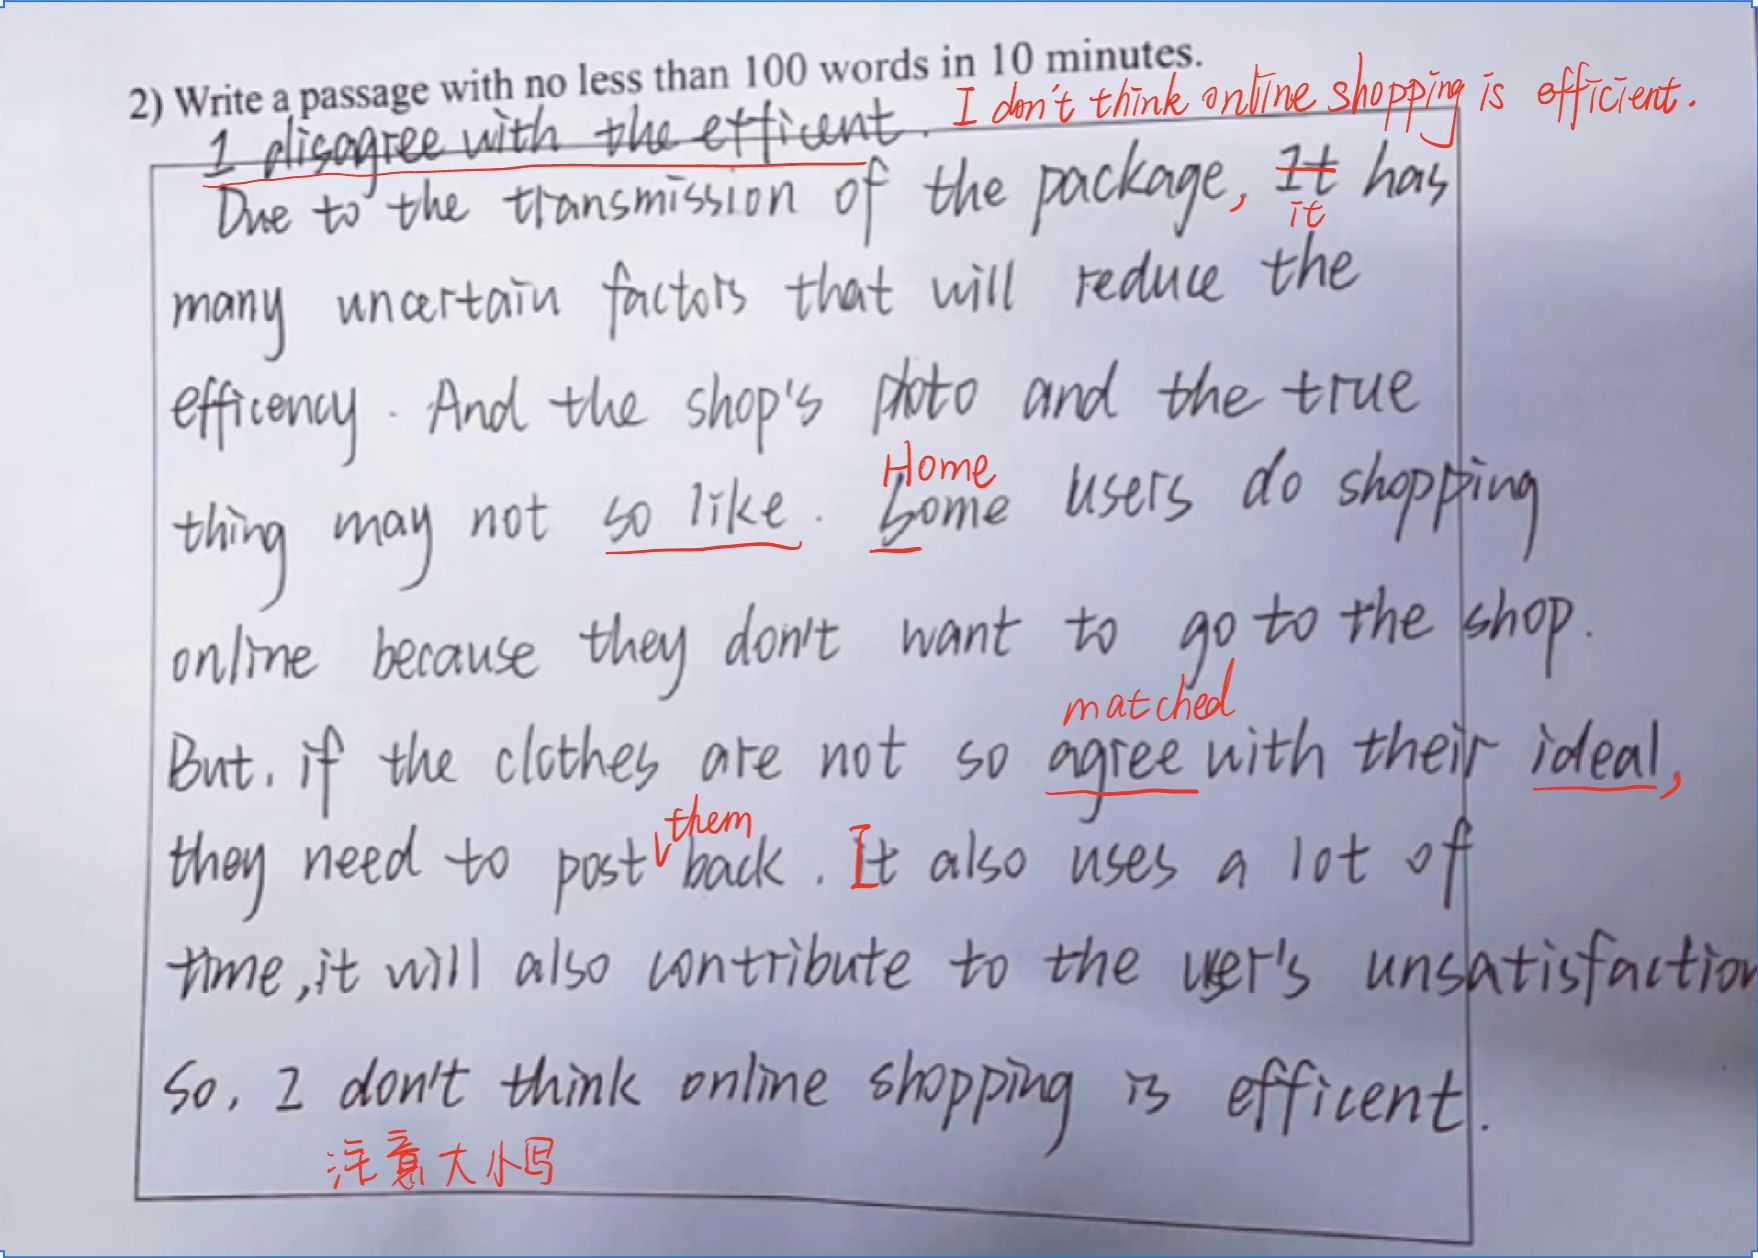 2) Write a passage with no less than 100 words in 10 minutes.
I disagree with the efficent. I don't think online shopping is efficient.
Due to the transmission of the package, It has
it
many uncertain factors that will reduce the
efficency. And the shop's photo and the true
Home
thing may not so like. Some users do shopping
online because they don't want to go to the shop.
matched
But. if the clothes are not so agree with their ideal,
them
they need to post back. It also uses a lot of
time, it will also contribute to the user's unsatisfaction
So, I don't think online shopping is efficent.
注意大小写